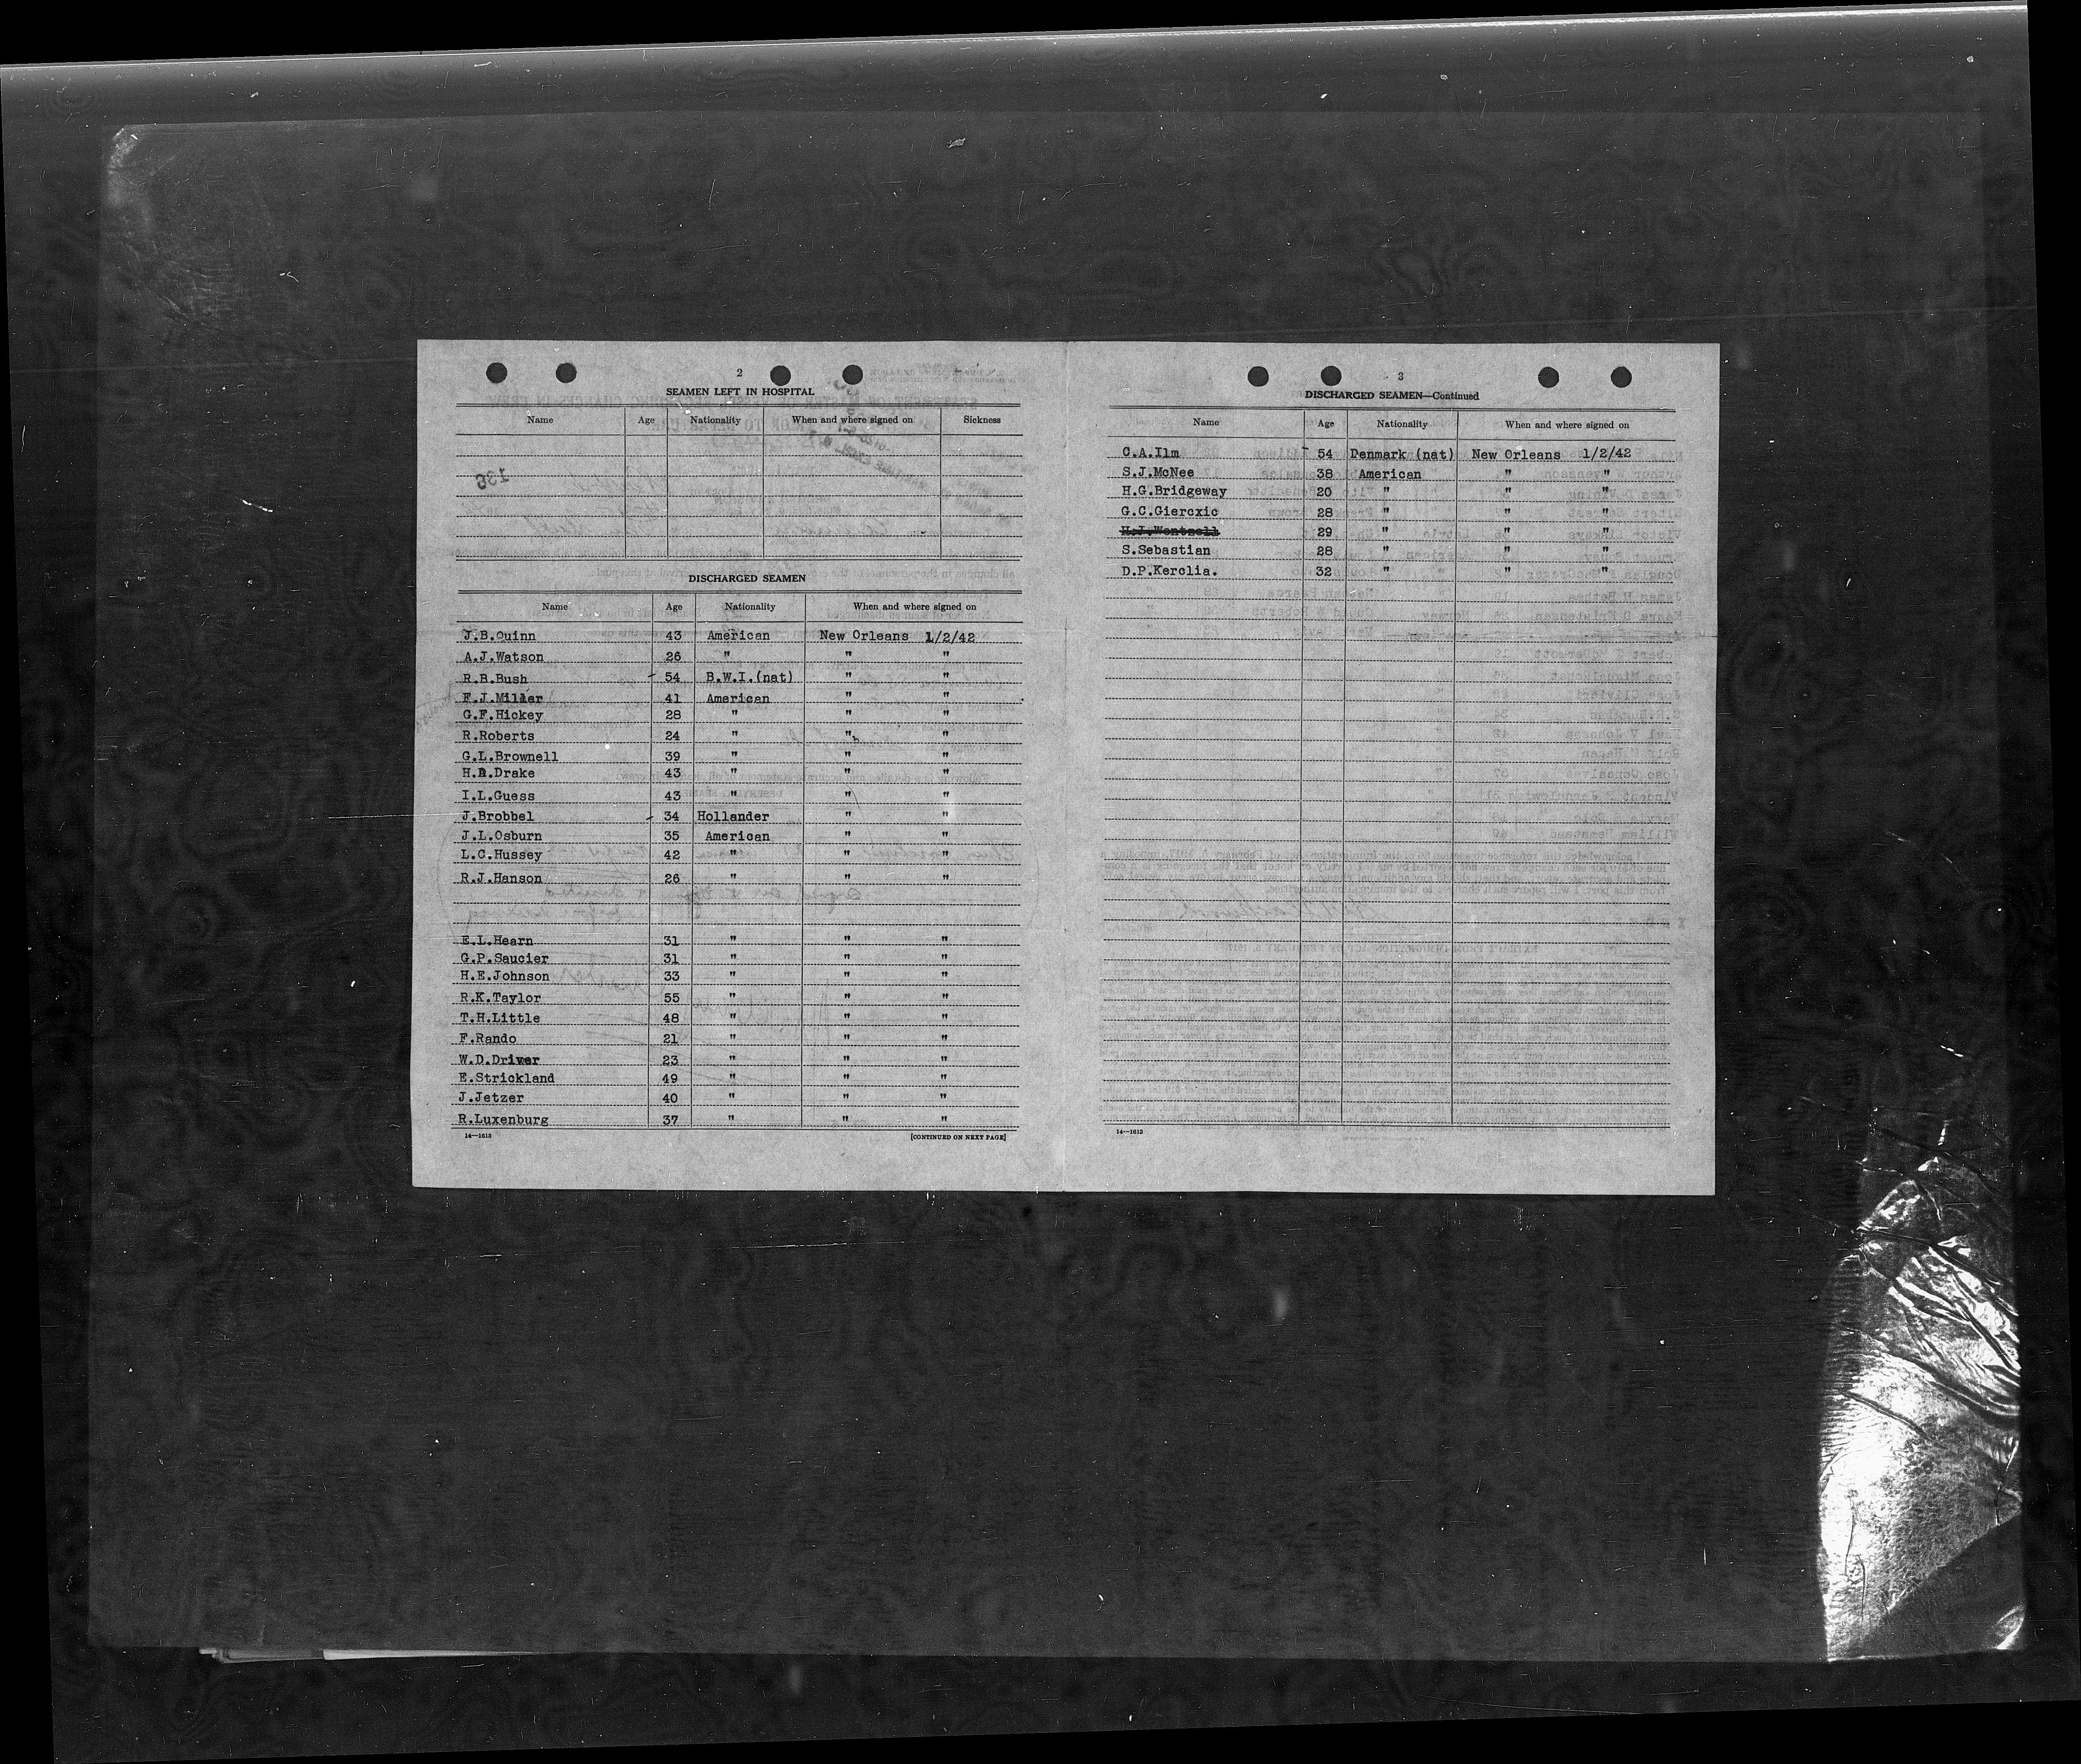 2
SEAMEN LEFT IN HOSPITAL
Name Age Nationality When and where signed on Sickness
136
DISCHARGED SEAMEN
Name Age Nationality When and where signed on
J.B.Quinn 43 American New Orleans 1/2/42
A.J.Watson 26 " " "
R.B.Bush 54 B.W.I.(nat) " "
F.J.Miller 41 American " "
G.F.Hickey 28 " " "
R.Roberts 24 " " "
G.L.Brownell 39 " " "
H.B.Drake 43 " " "
I.L.Guess 43 " " "
J.Brobbel 34 Hollander " "
J.L.Osburn 35 American " "
L.C.Hussey 42 " " "
R.J.Hanson 26 " " "
E.L.Hearn 31 " " "
G.P.Saucier 31 " " "
H.E.Johnson 33 " " "
R.K.Taylor 55 " " "
T.H.Little 48 " " "
F.Rando 21 " " "
W.D.Driver 23 " " "
E.Strickland 49 " " "
J.Jetzer 40 " " "
R.Luxenburg 37 " " "
14—1613 [CONTINUED ON NEXT PAGE]
3
DISCHARGED SEAMEN—Continued
Name Age Nationality When and where signed on
C.A.Ilm 54 Denmark (nat) New Orleans 1/2/42
S.J.McNee 38 American " "
H.G.Bridgeway 20 " " "
G.C.Giercxic 28 " " "
29 " " "
S.Sebastian 28 " " "
D.P.Kerclia. 32 " " "
14—1613